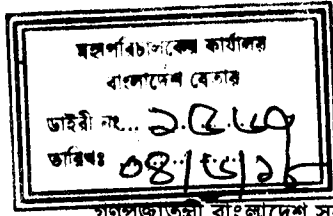 মহাপরিচালকের কার্যালয়
বাংলাদেশ বেতার
ডাইরী নং...
তারিখঃ ০৪/৬/১৮
গণপ্রজাতন্ত্রী বাংলাদেশ স